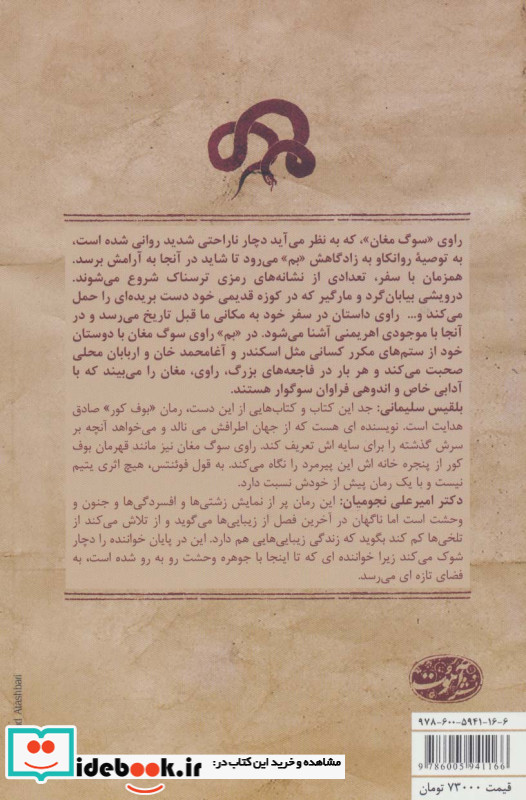 راوی «سوگ مغان»، که به نظر می‌آید دچار ناراحتی شدید روانی شده است،
به توصیهٔ روانکاو به زادگاهش «بم» می‌رود تا شاید در آنجا به آرامش برسد.
همزمان با سفر، تعدادی از نشانه‌های رمزی ترسناک شروع می‌شوند.
درویشی بیابان‌گرد و مارگیر که در کوزه قدیمی خود دست بریده‌ای را حمل
می‌کند و... راوی داستان در سفر خود به مکانی ما قبل تاریخ می‌رسد و در
آنجا با موجودی اهریمنی آشنا می‌شود. در «بم» راوی سوگ مغان با دوستان
خود از ستم‌های مکرر کسانی مثل اسکندر و آغامحمد خان و اربابان محلی
صحبت می‌کند و هر بار در فاجعه‌های بزرگ، راوی، مغان را می‌بیند که با
آدابی خاص و اندوهی فراوان سوگوار هستند.
بلقیس سلیمانی: جد این کتاب و کتاب‌هایی از این دست، رمان «بوف کور» صادق
هدایت است. نویسنده ای هست که از جهان اطرافش می نالد و می‌خواهد آنچه بر
سرش گذشته را برای سایه اش تعریف کند. راوی سوگ مغان نیز مانند قهرمان بوف
کور از پنجره خانه اش این پیرمرد را نگاه می‌کند. به قول فوئنتس، هیچ اثری یتیم
نیست و با یک رمان پیش از خودش نسبت دارد.
دکتر امیرعلی نجومیان: این رمان پر از نمایش زشتی‌ها و افسردگی‌ها و جنون و
وحشت است اما ناگهان در آخرین فصل از زیبایی‌ها می‌گوید و از تلاش می‌کند از
تلخی‌ها کم کند بگوید که زندگی زیبایی‌هایی هم دارد. این در پایان خواننده را دچار
شوک می‌کند زیرا خواننده ای که تا اینجا با جوهره وحشت رو به رو شده است، به
فضای تازه ای می‌رسد.
Atashbari
۹۷۸-۶۰۰-۵۹۴۱-۱۶-۶
9786005941166
قیمت ۷۳۰۰۰ تومان
مشاهده و خرید این کتاب در:
idebook.ir